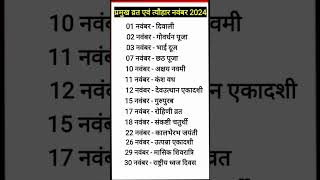 प्रमुख व्रत एवं त्यौहार नवंबर 2024
01 नवंबर - दिवाली
02 नवंबर - गोवर्धन पूजा
03 नवंबर - भाई दूज
07 नवंबर - छठ पूजा
10 नवंबर - अक्षय नवमी
11 नवंबर - कंश वध
12 नवंबर - देवउत्थान एकादशी
15 नवंबर - गुरुपुरब
17 नवंबर - रोहिणी व्रत
18 नवंबर - संकष्टी चतुर्थी
22 नवंबर - कालभैरभ जयंती
26 नवंबर - उत्पन्ना एकादशी
29 नवंबर - मासिक शिवरात्रि
30 नवंबर - राष्ट्रीय ध्वज दिवस